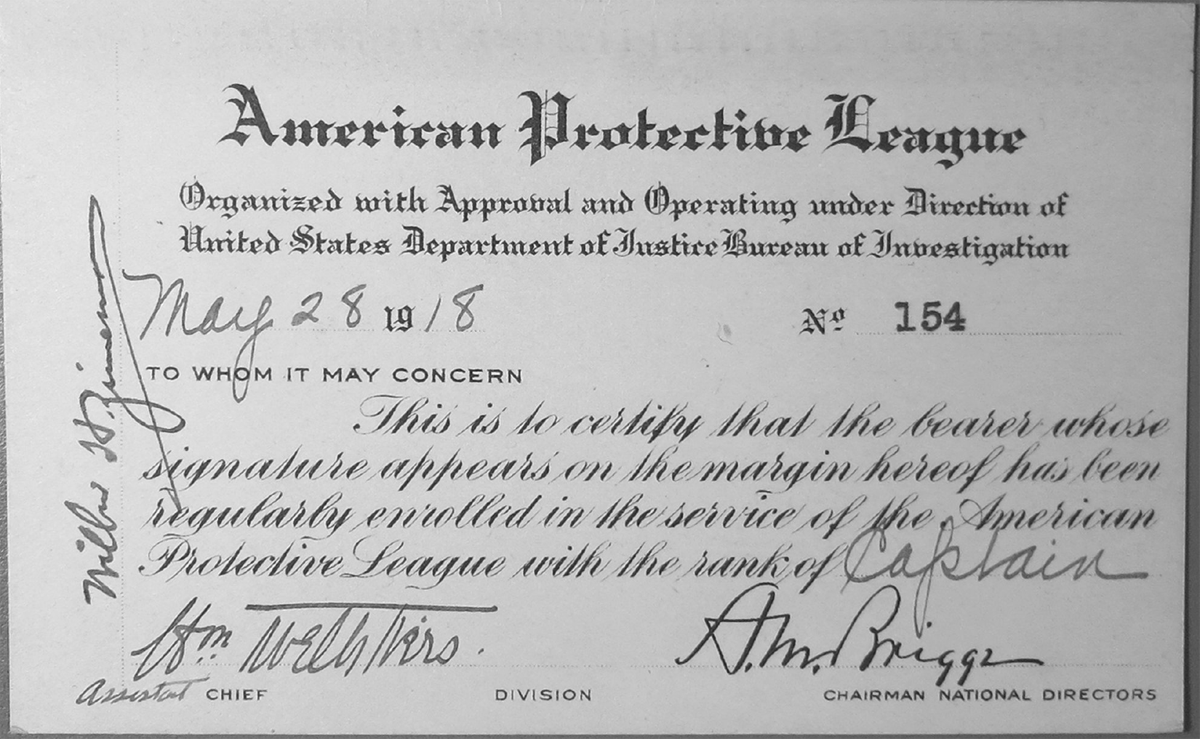 American Protective League
Organized with Approval and Operating under Direction of
United States Department of Justice Bureau of Investigation
May 28 1918 No 154
TO WHOM IT MAY CONCERN
This is to certify that the bearer whose
signature appears on the margin hereof has been
regularly enrolled in the service of the American
Protective League with the rank of Captain
A. M. Briggs
Assistant CHIEF DIVISION CHAIRMAN NATIONAL DIRECTORS